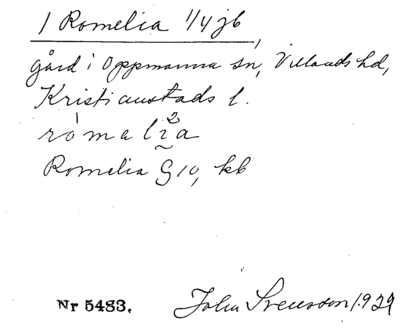 1 Romelia 1/4 jb,
gård i Oppmanna sn, Villands hd,
Kristianstads l.
ròmalìa
2
Romelia G 10, kb
Nr 5483. John Svensson 1929